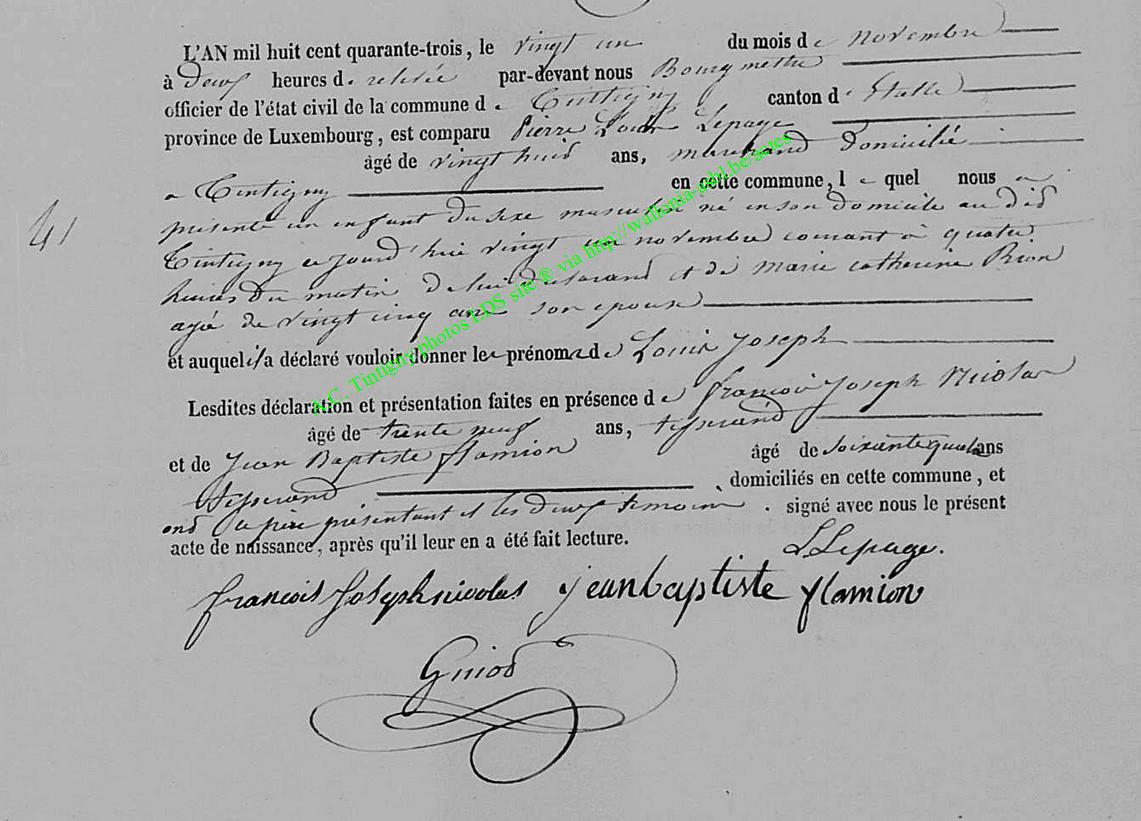 L'AN mil huit cent quarante-trois, le vingt un du mois de novembre
à deux heures de relevée par-devant nous Bourgmestre
officier de l'état civil de la commune de Tintigny canton d'Etalle
province de Luxembourg, est comparu Pierre Louis Lepage
âgé de vingt huit ans, marchand domicilié
a Tintigny en cette commune, lequel nous a
41
présenté un enfant du sexe masculin né en son domicile au dit
Tintigny ce jourd'hui vingt un novembre courant à quatre
heures du matin de lui déclarant et de Marie Catherine Rion
agée de vingt cinq ans son epouse
et auquel il a déclaré vouloir donner les prénoms de Louis Joseph
Lesdites déclaration et présentation faites en présence de françois Joseph Nicolas
âgé de trente neuf ans, tisserand
et de Jean Baptiste flamion âgé de soixante quatre ans
tisserand domiciliés en cette commune, et
ont le père présentant et les deux temoins signé avec nous le présent
acte de naissance, après qu'il leur en a été fait lecture.
L Lepage.
françois Joseph nicolas jean baptiste flamion
Guiot
A.C. Tintigny photos EDS site ® via http://wallonia-asbl.be/actes